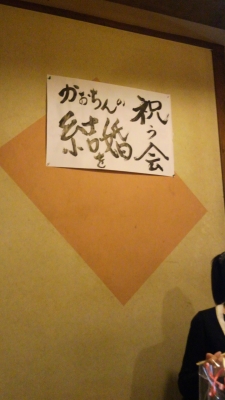 かおちんの
結婚を
祝う会